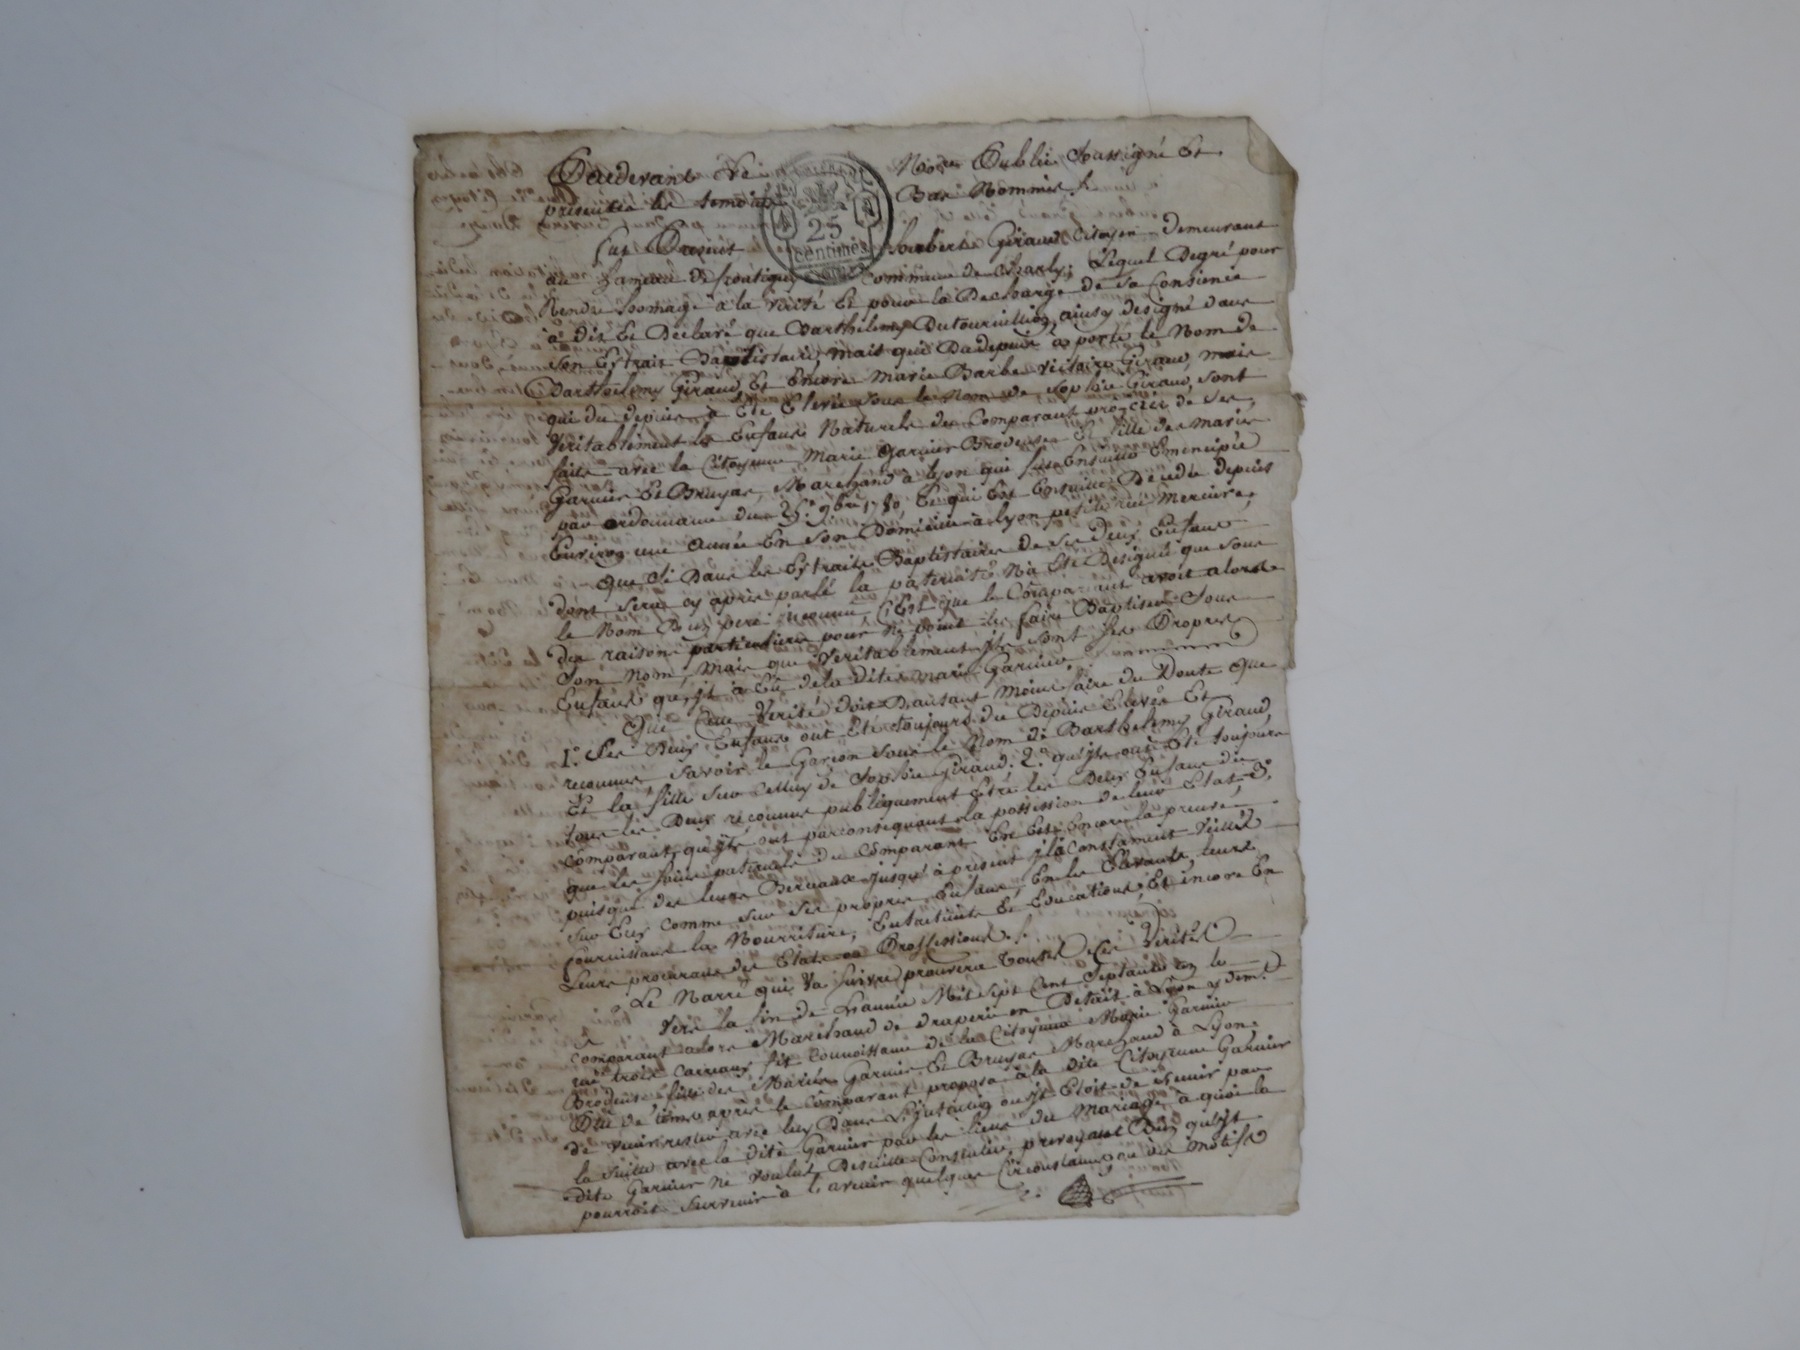 Pardevant le Nore Public Soussigné Et
présentés les temoins Bas Nommés /.
25
centimes
fut Present humbert Giraud Citoyen Demeurant
au hameau de frontigny Commune de Charly, Lequel Degré pour
Rendre homage a la verité Et pour la Decharge de Sa Consience
à dit Et Declaré que Barthélemy Dutournillion, ainsy designé dans
Son Extrait Baptistaire, mais qui Dudepuis a porté le Nom de
Barthélemy Giraud, Et Encore Marie Barbe victoire Giraud, mais
qui du depuis a Eté Elevée sous le Nom de Sophie Giraud, Sont
Veritablement les Enfans Naturels du Comparant procréés de Ses
faits avec la Citoyenne Marie Garnier Brodeuse Et fille des maries
Garnier Et Bruyas, Marchand à Lyon qui fut Ensuitte Emencipée
par ordonnance du 9bre 1780, Et qui Est Ensuitte Décédée depuis
Environ une année En Son Domicile à Lyon petite rue Merciere,
Que Si Dans les Extraits Baptistaires de Ses Deux Enfans
dont Sera cy après parlé la paternité N'a Eté Designée que Sous
le Nom D'un pere inconnu, C'Est que le Comparant avoit alors
des raisons particulieres pour Ne point les faire Baptiser Sous
Son Nom, Mais que Veritablement ils Sont Ses Propres
Enfans qu'il à Eu de la ditte Marie Garnier
Que Cette Verité doit D'autant Moins faire du Doute que
1.° Ses Deux Enfans ont Eté toujours du Depuis Elevés Et
reconnus, Savoir le Garçon Sous le Nom de Barthelemy Giraud,
Et la fille Sur Celluy de Sophie Giraud. 2.° qu'ils ont Eté toujours
tous les Deux reconnus publiquement Etre les Deux Enfans du
Comparant, qu'ils ont par Consequant la possession de leur Etat, 3.°
que les soins paternels du Comparant En Est Encore la preuve,
puisque des leurs Berceaux jusqu'à présent il à Constament Veillé
Sur Eux Comme Sur Ses propres Enfans, En les Elevants, leurs
fournissant la Nourriture, Entretients Et Educations, Et Encore En
Leurs procurant des Etats ou Proffessions /.
Le Narré qui Va Suivre prouvera toutes Ses Verités
Vers la fin de L'année Mil Sept Cent Septante le
Comparant alors Marchand de draperie en Detait à Lyon y demt
rue trois Carreaux fit Connoissance de la Citoyenne Marie Garnier
Brodeuse fille des Mariés Garnier Et Bruyas Marchand à Lyon,
Peu de tems après le Comparant proposa à la dite Citoyenne Garnier
de venir rester avec luy Dans L'Intention ou il Etoit de S'unir par
la Suitte avec la dite Garnier par les liens du Mariage à quoi la
dite Garnier ne Voulut Desuitte Consentir, prevoyant Bien qu'il
pourroit Survenir à l'avenir quelques Circonstances ou des Motifs